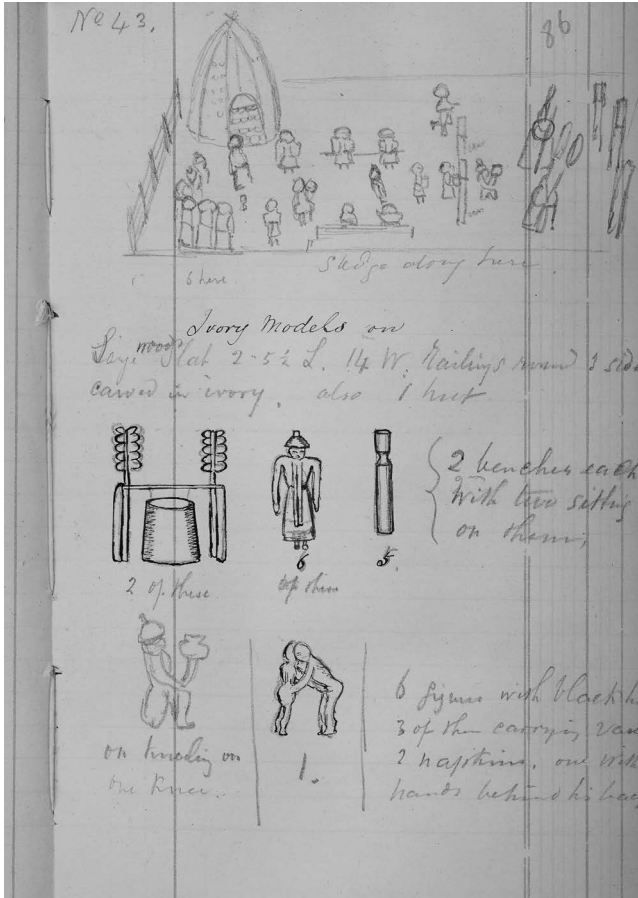 No 43.
86
Sledge along here
s here
Ivory Models on
Large wood flat 2-5½ L. 14 W. Railings round 3 sid
carved in ivory. also 1 hut
2 benches each
with two sitting
on them,
6
5.
2 of these
of them
on kneeling on
one knee.
1.
6 figures with black h
3 of them carrying
2 napkins. one with
hands behind his bac